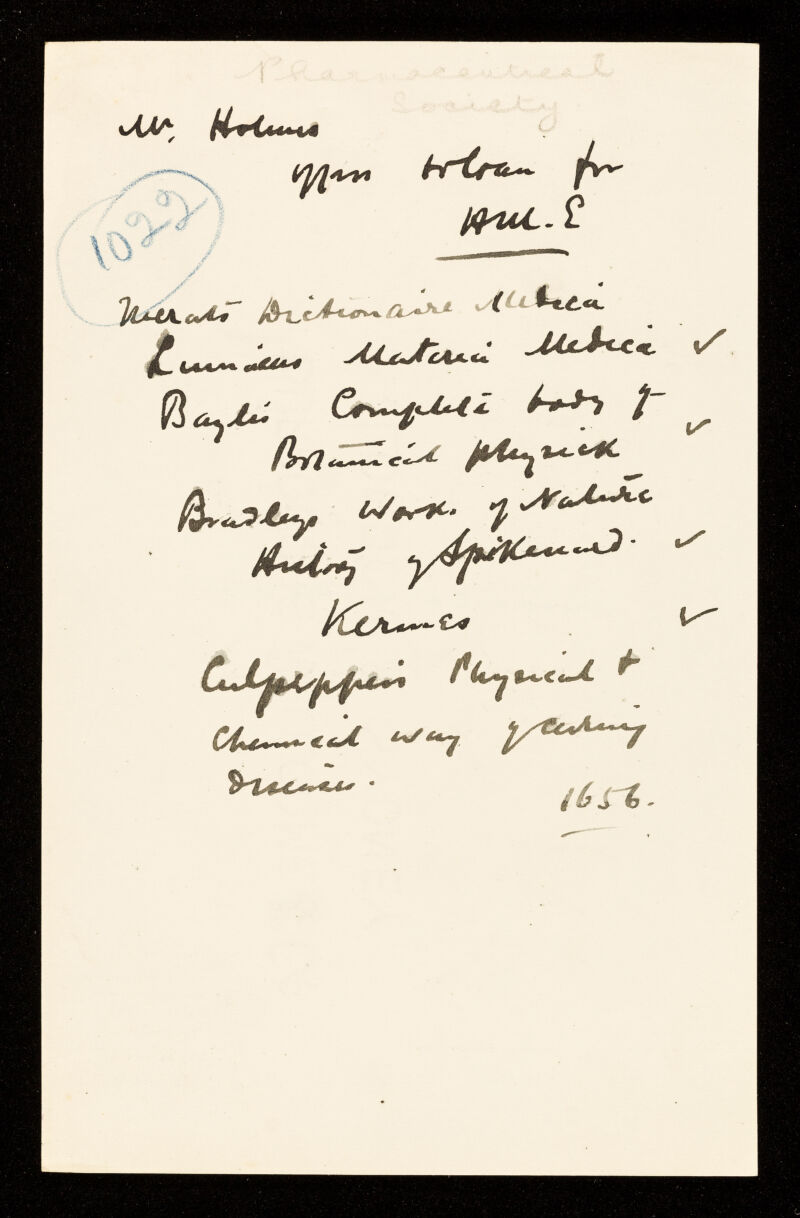 Pharmaceutical
Society
Mr. Holmes
offers to loan for
H.M.E
1022
Merats Dictionaire Medica
Linnaeus Materia Medica ✓
Baylis Complete body of
Botanical physick ✓
Bradleys Work. of Nature
History of Spikenard. ✓
Kermes ✓
Culpeppers Physical +
Chemical way of curing
diseases.
1656.